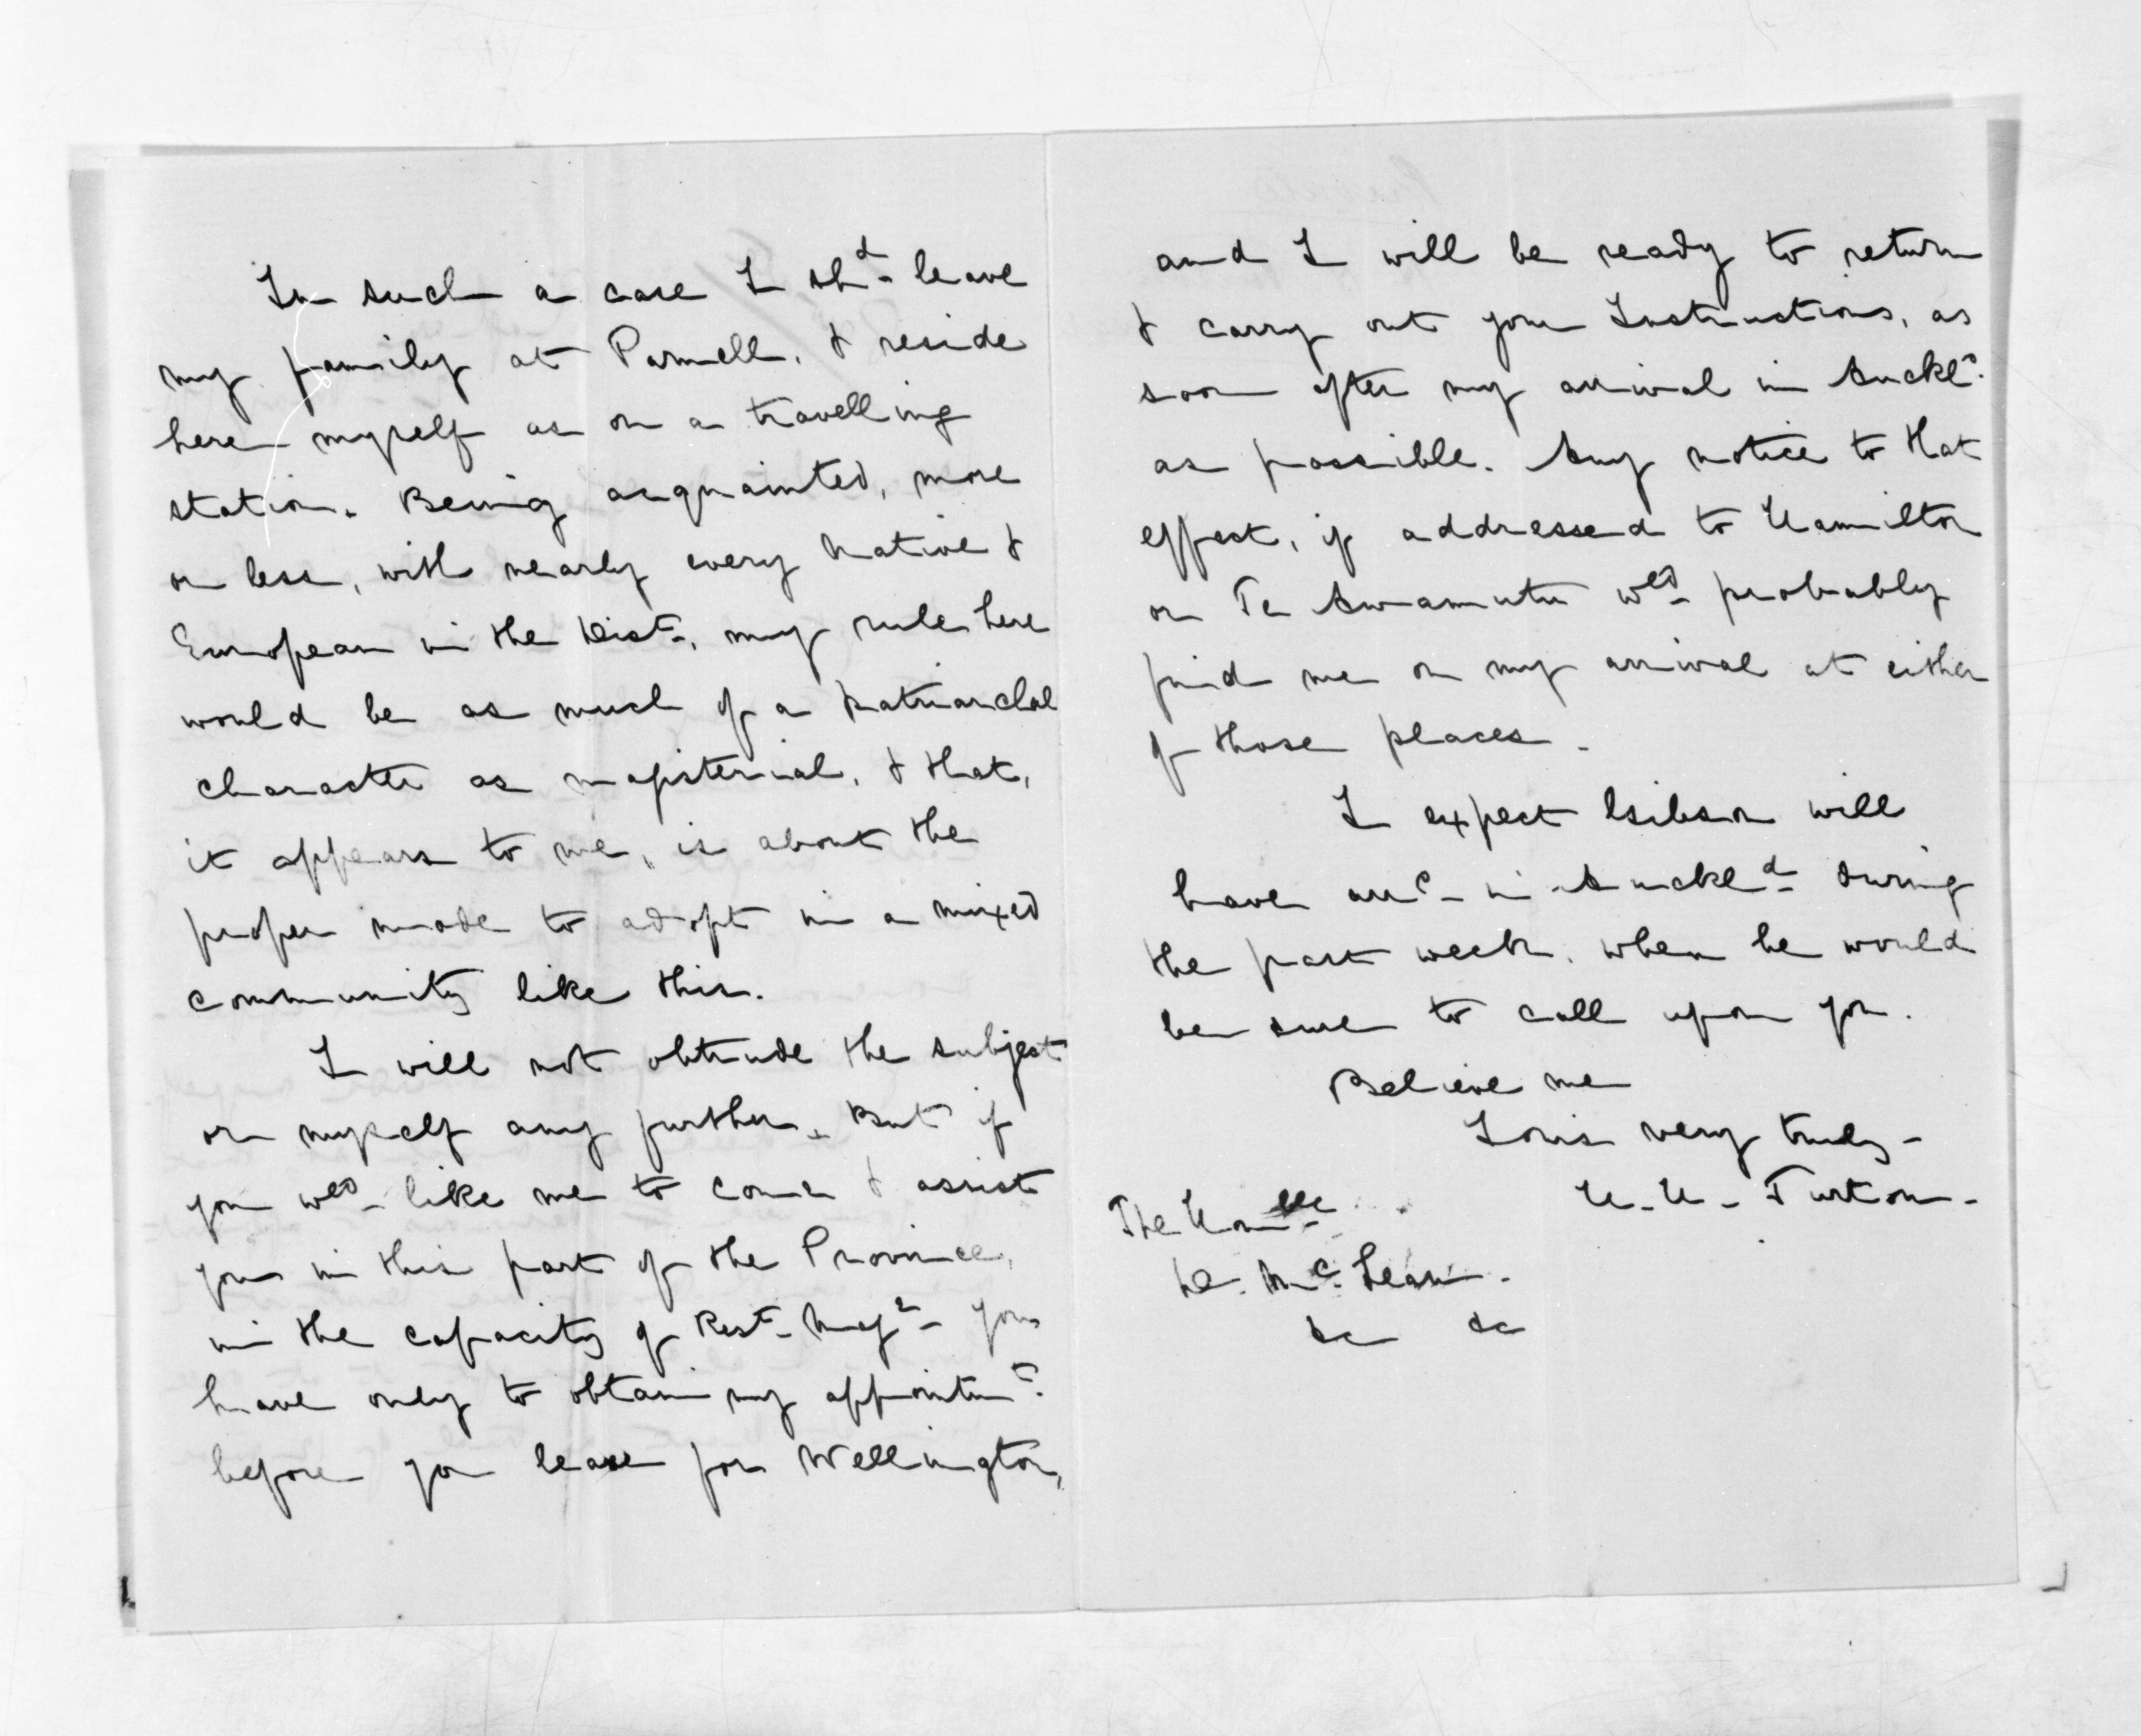 In such a case I shd. leave
my family at Parnell, & reside
here myself as on a travelling
station. Being acquainted, more
or less, with nearly every Native &
European in the Dist., my rule here
would be as much of a patriarchal
character as magisterial, & that,
it appears to me, is about the
proper mode to adopt in a mixed
community like this.
I will not obtrude the subject
or myself any further. But if
you wld. like me to come & assist
you in this part of the Province,
in the capacity of Rest. Magte. you
have only to obtain my appointmt.
before you leave for Wellington,
and I will be ready to return
& carry out your Instructions, as
soon after my arrival in Auckld.
as possible. Any notice to that
effect, if addressed to Hamilton
or Te Awamutu wld. probably
find me on my arrival at either
of those places.
I expect Gibson will
have arrd. in Auckld. during
the past week, when he would
be sure to call upon you.
Believe me
Yours very truly -
H. H. Turton -
The Honble.
D. McLean.
&c &c